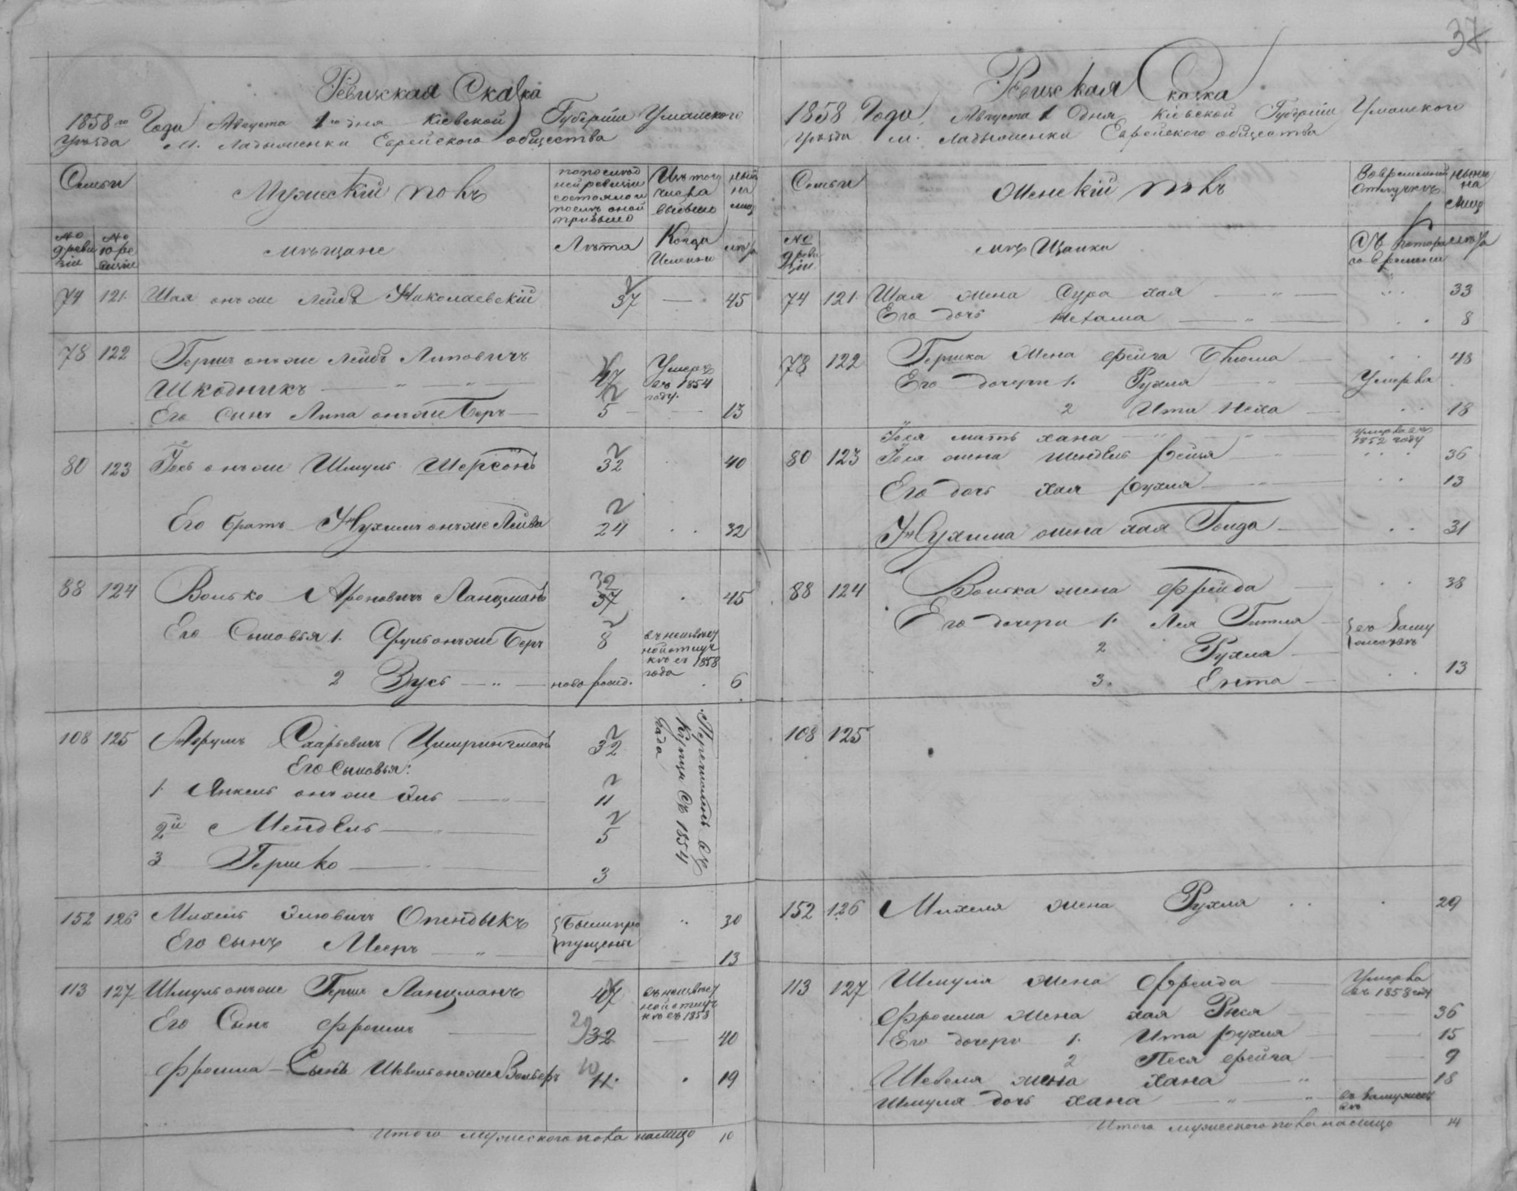 37
Ревизская Сказка
1858го Года Августа 1го дня Кіевской Губерніи Уманского
уѣзда м. Ладыженки Еврейского общества
Семьи
Мужескій полъ
Изъ того числа выбыло
нынѣ на лицо
№ 9 ревизіи
№ 10 ревизіи
мѣщане
Лѣта
Когда именно
лѣта
74 121 Шая онъ же Лейба Николаевскій 37 45
78 122 Герш онъ же Лейбъ Липовичъ
Шкодникъ 47 Умеръ въ 1854 году
Его сынъ Липа онъ же Беръ 5 13
80 123 Гось онъ же Шмуль Шерсонъ 32 40
Его братъ Нухимъ онъ же Лейба 24 32
88 124 Волько Ароновичъ Ланцманъ 37 45
Его Сыновья 1. Сруль онъ же Беръ 8 въ неизвѣстной отлучкѣ съ 1858 года
2 Зусь ново рожд. 6
108 125 Аврумъ Цимрингманъ 32 Перечисленъ въ купцы съ 1854 года
Его сыновья:
1. Янкель онъ же Эль 11
2й Мендель 5
3 Гершко 3
152 126 Михель Опендыкъ Были пропущены 30
Его сынъ Мееръ 13
113 127 Шмуль онъ же Герш Ланцманъ 47 въ неизвѣстной отлучкѣ съ 1858
Его Сынъ Фроимъ 32 40
Фроима Сынъ 11 19
Итого мужеского пола на лицо 10
Ревизская Сказка
1858 Года Августа 1 дня Кіевской Губерніи Уманского
уѣзда м. Ладыженки Еврейского общества
Семьи
Женскій полъ
Во временной отлучкѣ
нынѣ на лицо
№ 9 ревизіи
мѣщанки
Съ котораго времени
лѣта
74 121 Шая жена Сура хая 33
Его дочь Нехама 8
78 122 Гершка жена Фейга Блюма 48
Его дочери 1. Рухля Умерла
2 Ита Неха 18
80 123 мать хана умерла въ 1852 году
жена Шендель Рейзя 36
Его дочь хая рухля 13
Нухима жена хая Голда 31
88 124 Волька жена Фрейда 38
Его дочери 1. Лея Гитля въ замужествѣ
2 Рухля
3. Ента 13
108 125
152 126 Михеля жена Рухля 29
113 127 Шмуля жена Фрейда Умерла въ 1858 году
Фроима жена хая Рися 36
Его дочери 1. Ита рухля 15
2 Песя фейга 9
Шевеля жена хана 18
Шмуля дочь хана въ замужествѣ
Итого мужеского пола на лицо 14